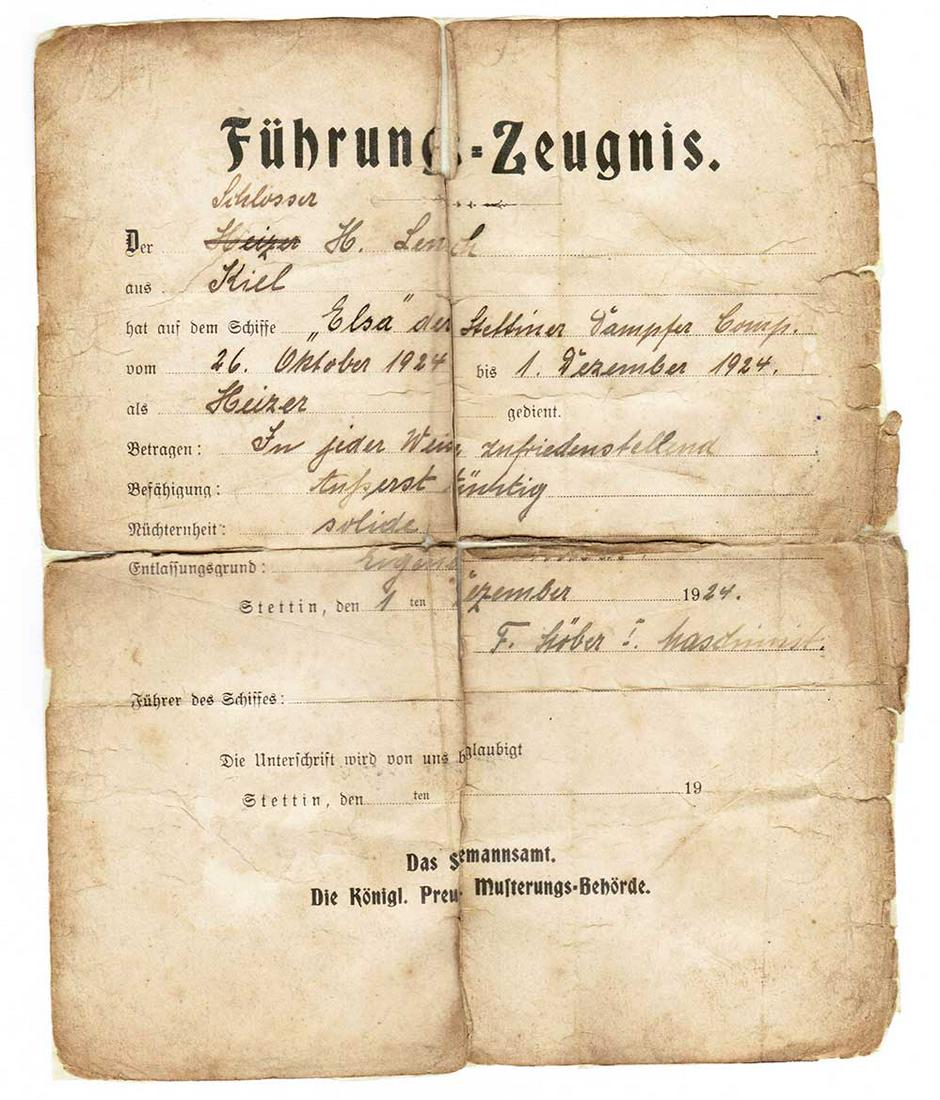 Führungs-Zeugnis.
Schlosser
Der Heizer H. Lensch
aus Kiel
hat auf dem Schiffe „Elsa" der Stettiner Dampfer Comp.
vom 26. Oktober 1924 bis 1. Dezember 1924.
als Heizer gedient.
Betragen: In jeder Weise zufriedenstellend
Befähigung: Äußerst tüchtig
Nüchternheit: solide
Entlassungsgrund:
Stettin, den 1 ten Dezember 1924.
F. Höber I. Maschinist.
Führer des Schiffes:
Die Unterschrift wird von uns beglaubigt
Stettin, den ten 19
Das Seemannsamt.
Die Königl. Preu Musterungs-Behörde.